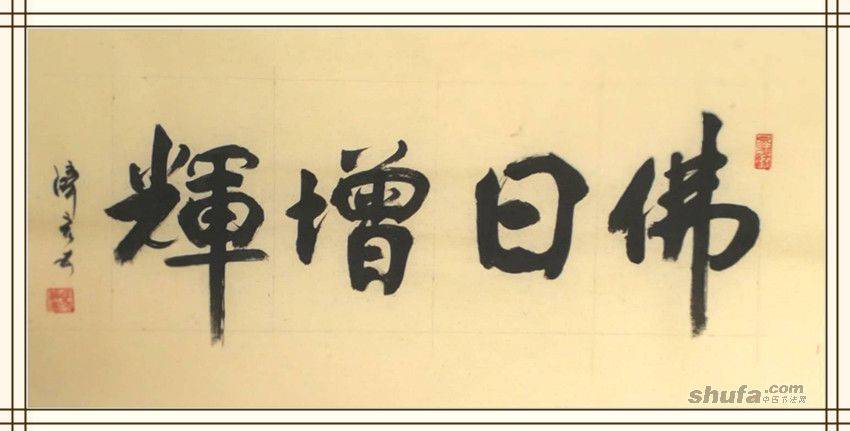 佛日增輝
shufa.com
中国书法网